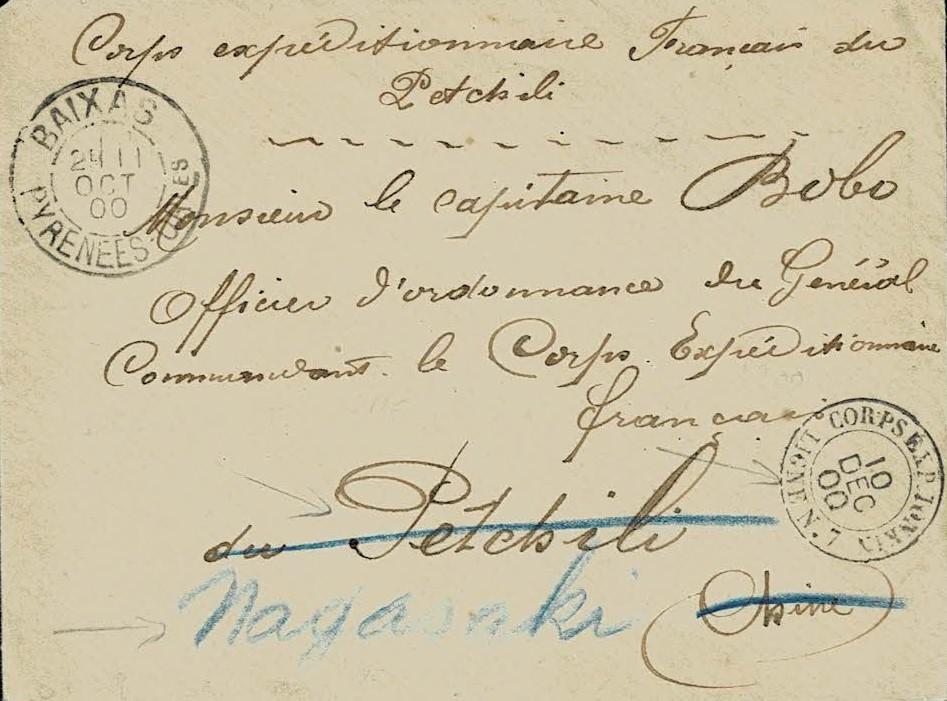 Corps expéditionnaire Français du
Petchili
BAIXAS
OCT
00
PYRENEES-
Monsieur le capitaine Bobo
Officier d'ordonnance du Général
Commandant le Corps Expéditionnaire
français
CORPS EXP. TONKIN
10
DEC
00
du Petchili
Chine
Nagasaki